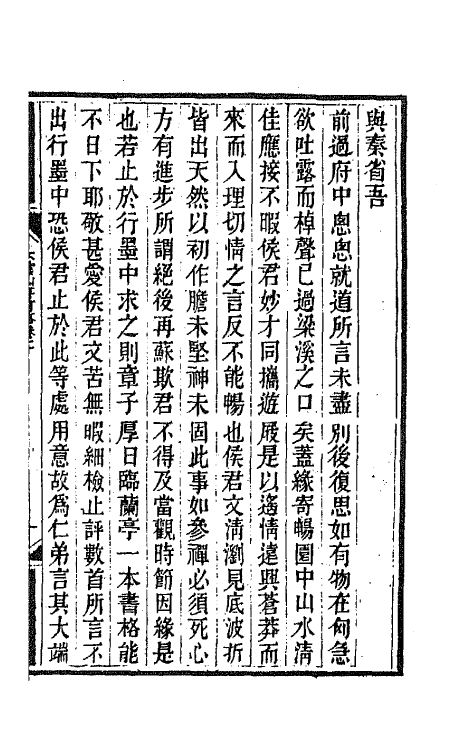 與秦省吾
前過府中悤悤就道所言未盡別後復思如有物在匈急
欲吐露而棹聲已過梁溪之口矣蓋緣寄暢園中山水淸
佳應接不暇侯君妙才同攜遊屐是以遙情遠興蒼莽而
來而入理切情之言反不能暢也侯君文淸瀏見底波折
皆出天然以初作膽未堅神未固此事如參禪必須死心
方有進步所謂絕後再蘇欺君不得及當觀時節因緣是
也若止於行墨中求之則章子厚日臨蘭亭一本書格能
不日下耶敬甚愛侯君文苦無暇細檢止評數首所言不
出行墨中恐侯君止於此等處用意故爲仁弟言其大端